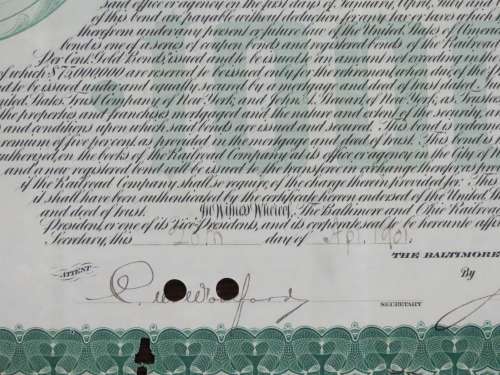 said office or agency on the first days of January, April, July and
of this bond are payable without deduction for any tax or taxes which
thereon under any present or future law of the United States of Ameri
bond is one of a series of coupon bonds and registered bonds of the Railroad
Per Cent. Gold Bonds, issued and to be issued to an amount not to exceed in
of which $75,000,000 are reserved to be issued only for the retirement, when due, of the
and to be issued under and equally secured by a mortgage and deed of trust dated
United States Trust Company of New York, and John A. Stewart, of New York, as Trustees
the properties and franchises mortgaged and the nature and extent of the security, a
and conditions upon which said bonds are issued and secured. This bond is redeem
amount of five per cent, as provided in the mortgage and deed of trust. This bond is
authorized, on the books of the Railroad Company at its office or agency in the city
and a new registered bond will be issued to the transferee in exchange therefor as prov
if the Railroad Company shall so require, of the charge therein provided for. This
it shall have been authenticated by the certificate hereon endorsed of the United
and deed of trust. In Witness Whereof, The Baltimore and Ohio Railroad
President or one of its Vice Presidents, and its corporate seal to be hereunto affi
Secretary, this 20th day of Apl. 1901.
THE BALTIMORE
ATTEST
By
C. W. Woolford
SECRETARY